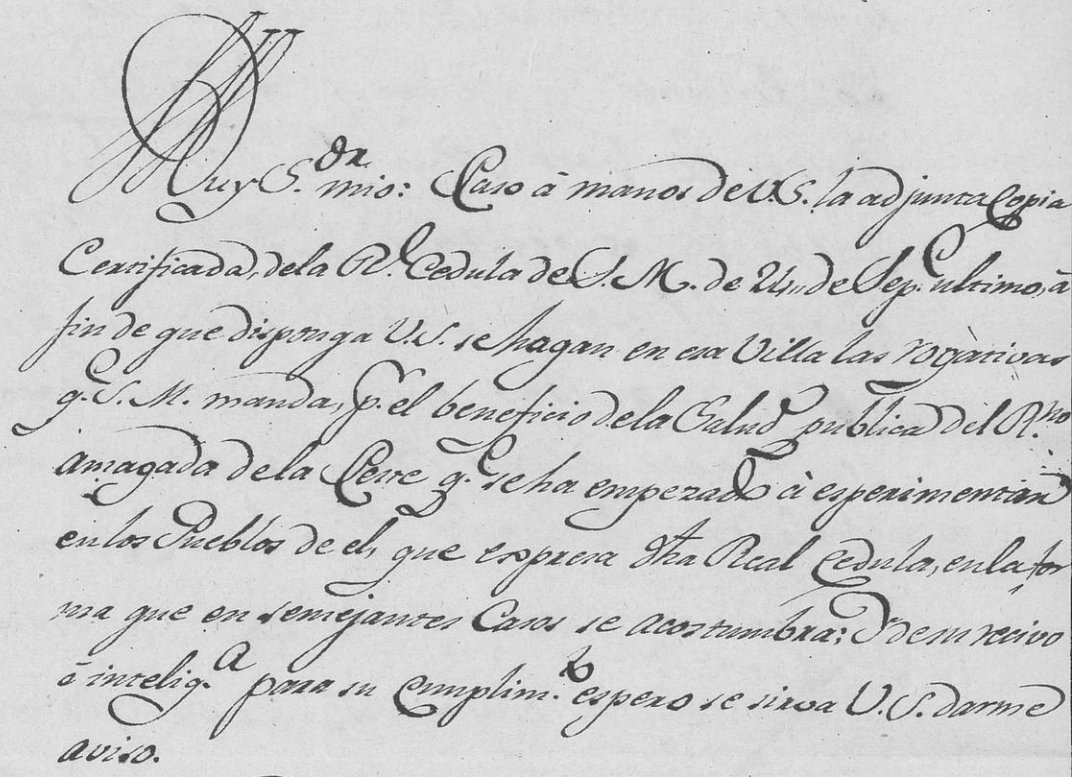 Muy S.or mio: Paso â manos de V.S. la adjunta Copia
Certificada, de la R.l Cedula de S. M. de 24,, de Sep.e ultimo, â
fin de que disponga V.S. se hagan en esa Villa las rogativas
q.e S. M. manda, p.r el beneficio de la Salud publica del R.no
amagada de la Peste q.e se ha empezado â esperimentar
en los Pueblos de el, que expresa dha Real Cedula, en la for
ma que en semejantes Casos se acostumbra: Y de su recivo
ê intelig.a para su Cumplim.to espero se sirva V. S. darme
aviso.